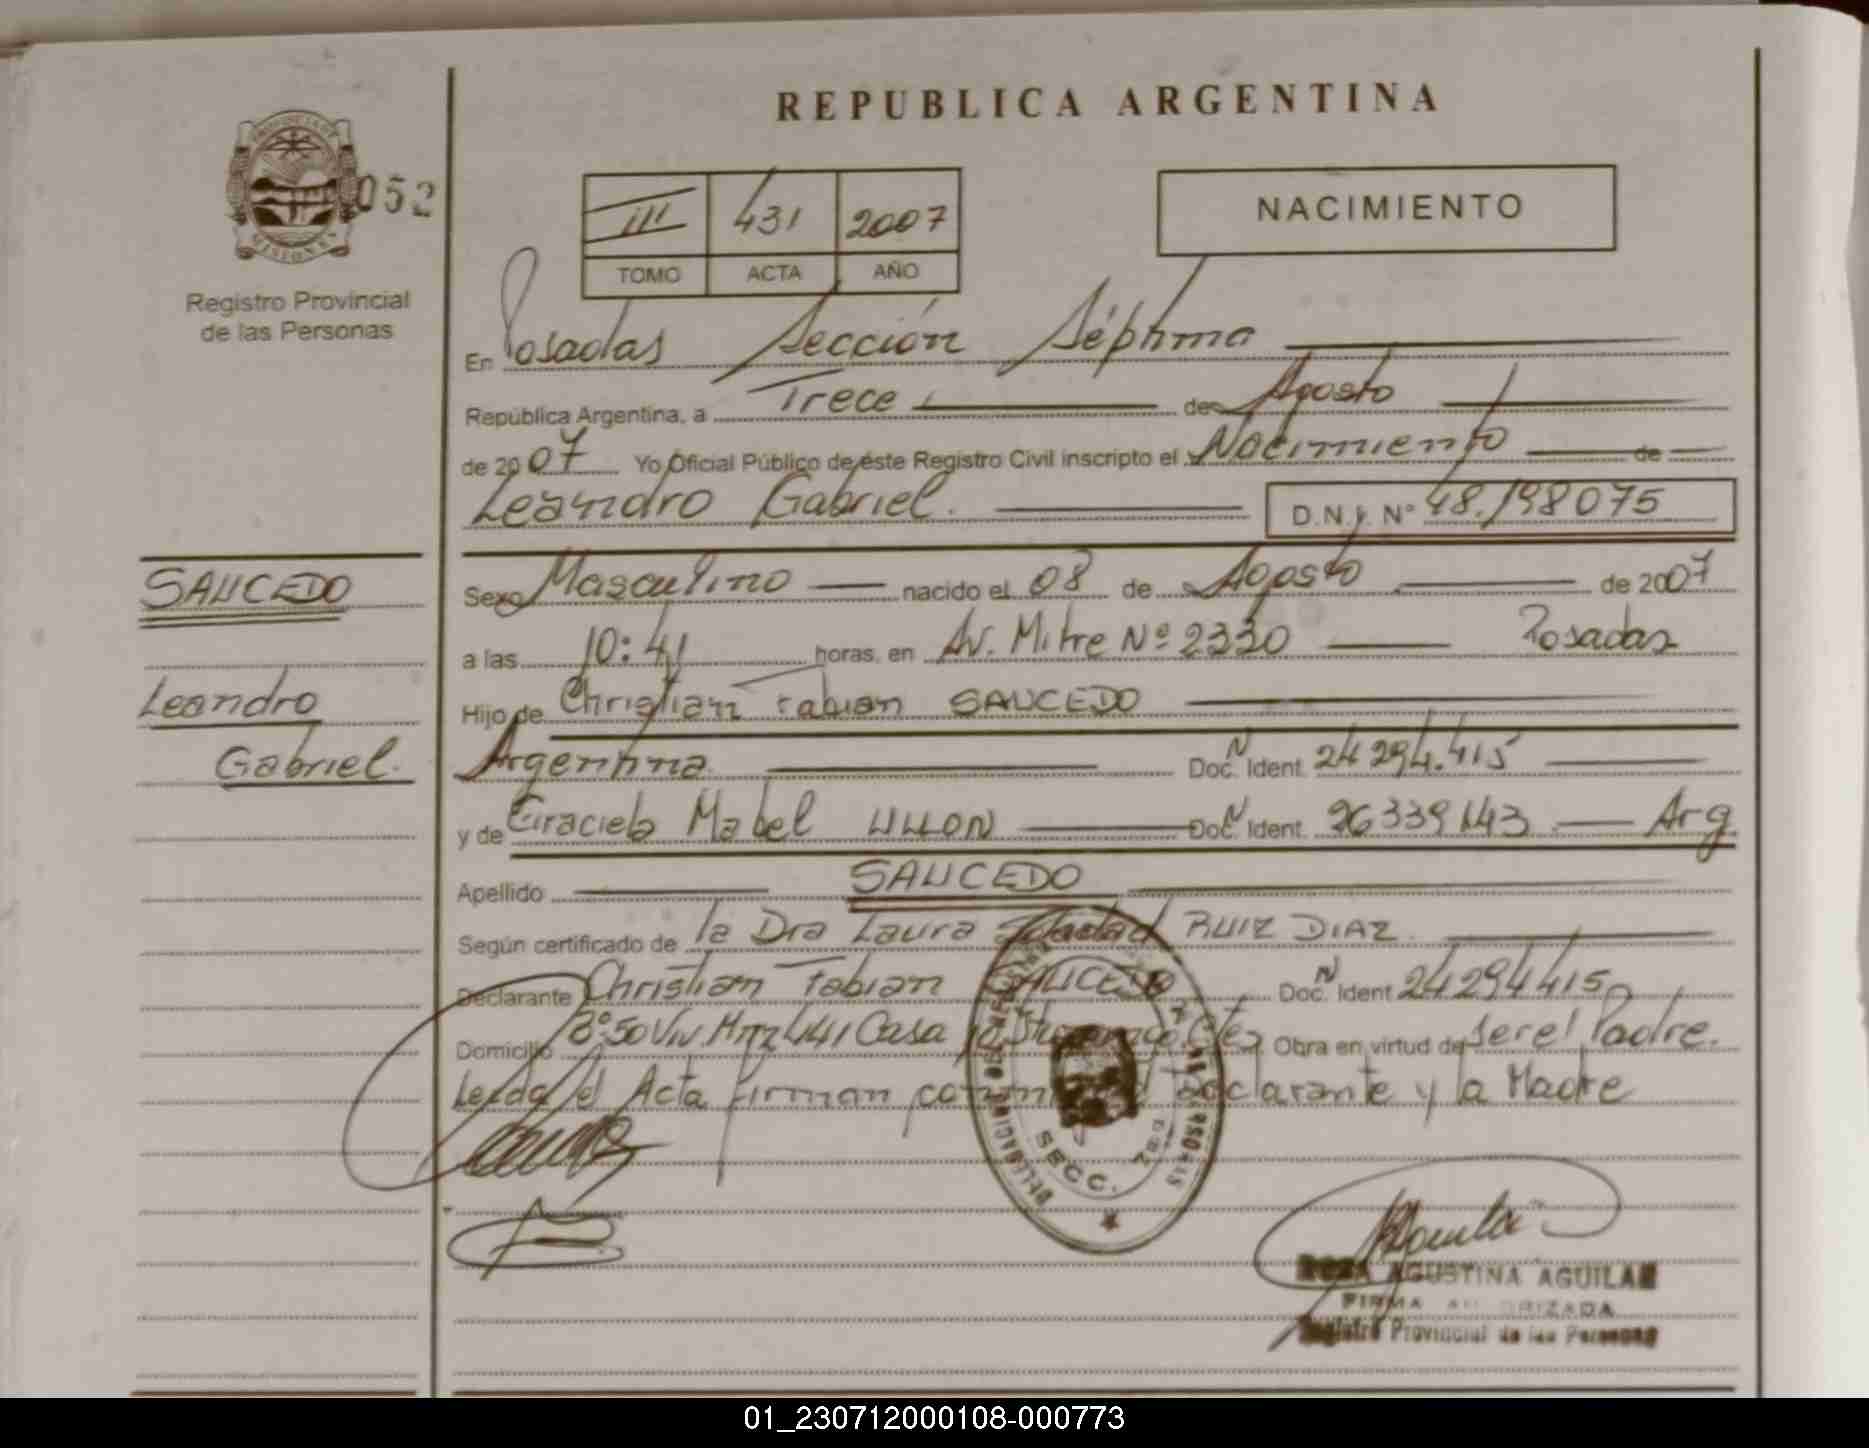 REPUBLICA ARGENTINA
052
III 431 2007
TOMO ACTA AÑO
NACIMIENTO
Registro Provincial
de las Personas
En Posadas Sección Séptima
República Argentina, a Trece de Agosto
de 2007 Yo Oficial Público de éste Registro Civil inscripto el Nacimiento de
Leandro Gabriel. D.N.I. Nº 48.198075
SAUCEDO
Leandro
Gabriel.
Sexo Masculino nacido el 08 de Agosto de 2007
a las 10:41 horas, en Av. Mitre Nº 2330 Posadas
Hijo de Christian Fabian SAUCEDO
Argentina Doc. N Ident. 24 294.415
y de Graciela Mabel Doc. N Ident. 26339143 Arg
Apellido SAUCEDO
Según certificado de la Dra Laura Soledad RUIZ DIAZ
Declarante Christian Fabian SAUCEDO Doc. N Ident 24294415
Domicilio Bº 50 Viv. Mnz 441 Casa Obra en virtud de ser el Padre.
Leída el Acta firman conmigo el Declarante y la Madre
SECC.
ROSA AGUSTINA AGUILAR
FIRMA AUTORIZADA
Registro Provincial de las Personas
01_230712000108-000773